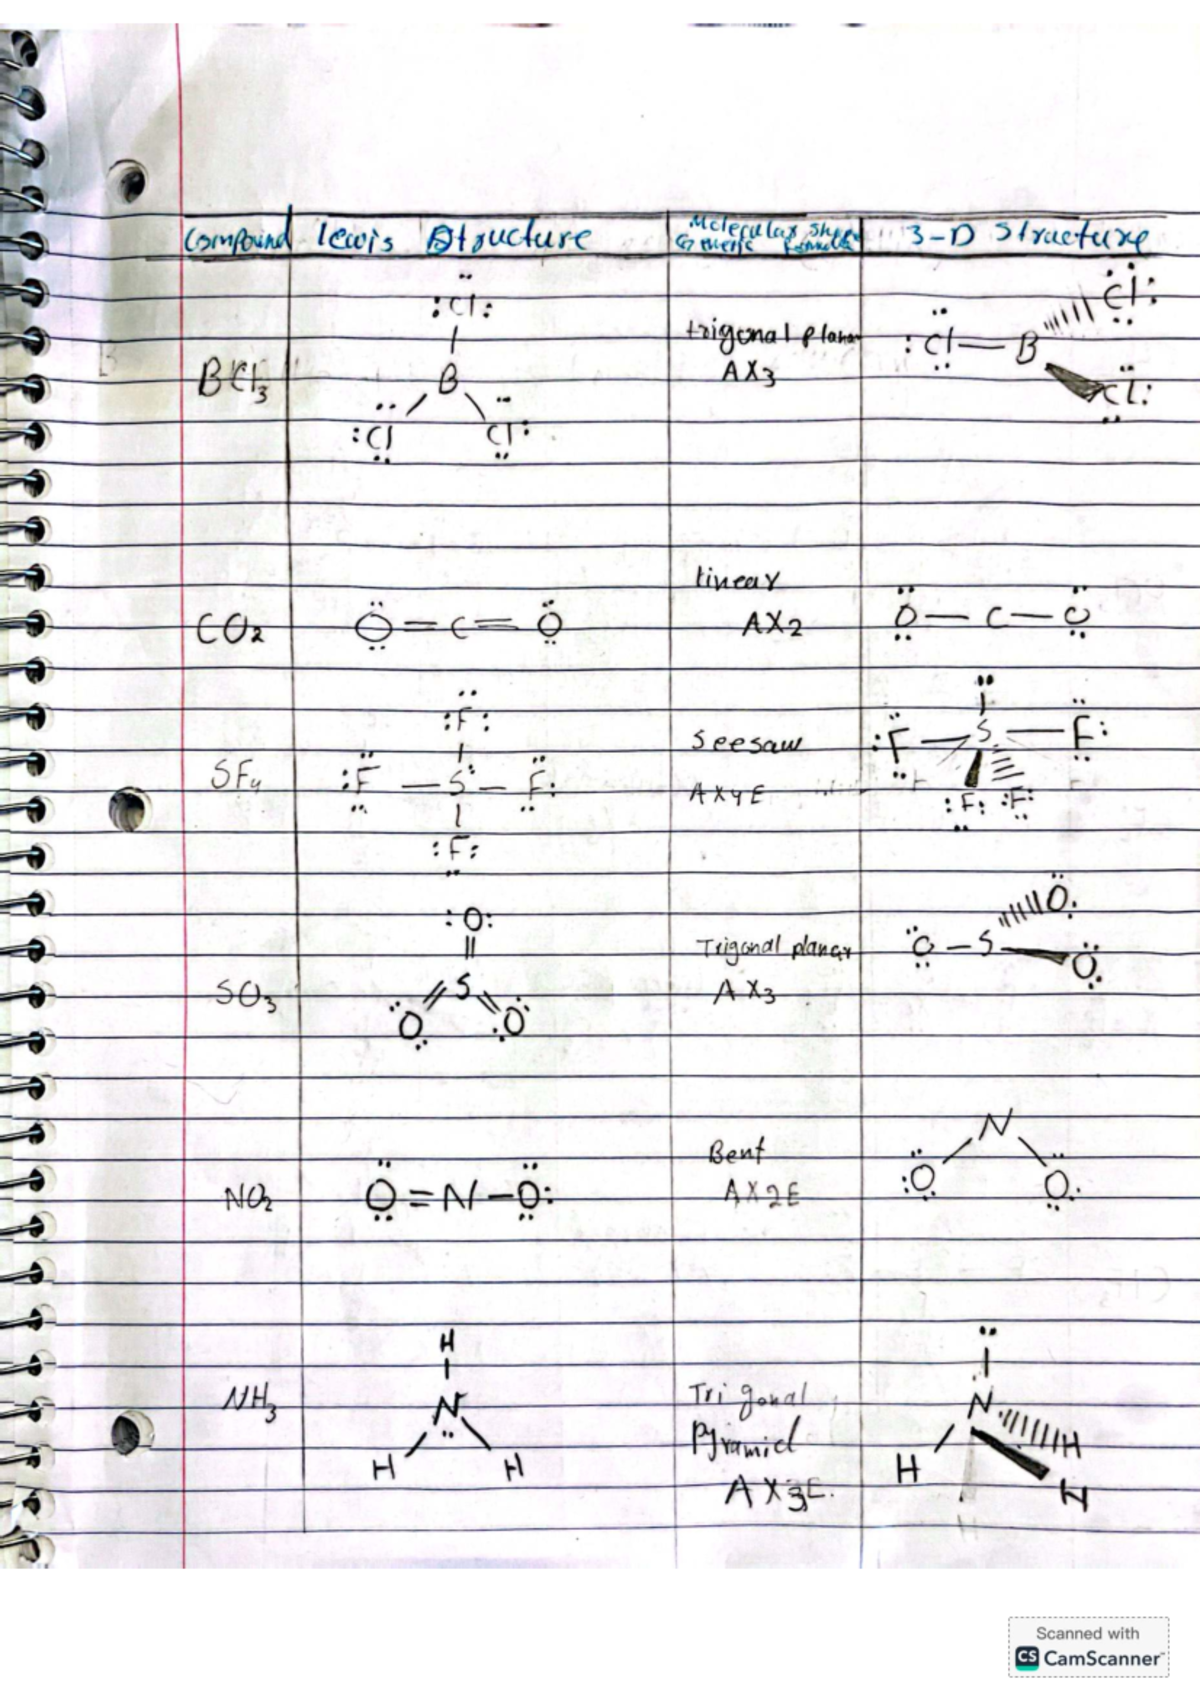 Compound Lewis Structure Molecular Shape Generic formula 3-D Structure
BCl3
:Cl:
B
:Cl Cl:
trigonal planar
AX3
:Cl — B
Cl:
Cl:
CO2
O = C = O
linear
AX2
O — C — O
SF4
:F:
:F — S — F:
:F:
Seesaw
AX4E
:F — S — F:
:F: :F:
SO3
:O:
S
O O
Trigonal planar
AX3
O — S
O
O
NO2
O = N — O:
Bent
AX2E
N
:O O:
NH3
H
N
H H
Trigonal
pyramid
AX3E.
N
H H
H
Scanned with
CS CamScanner